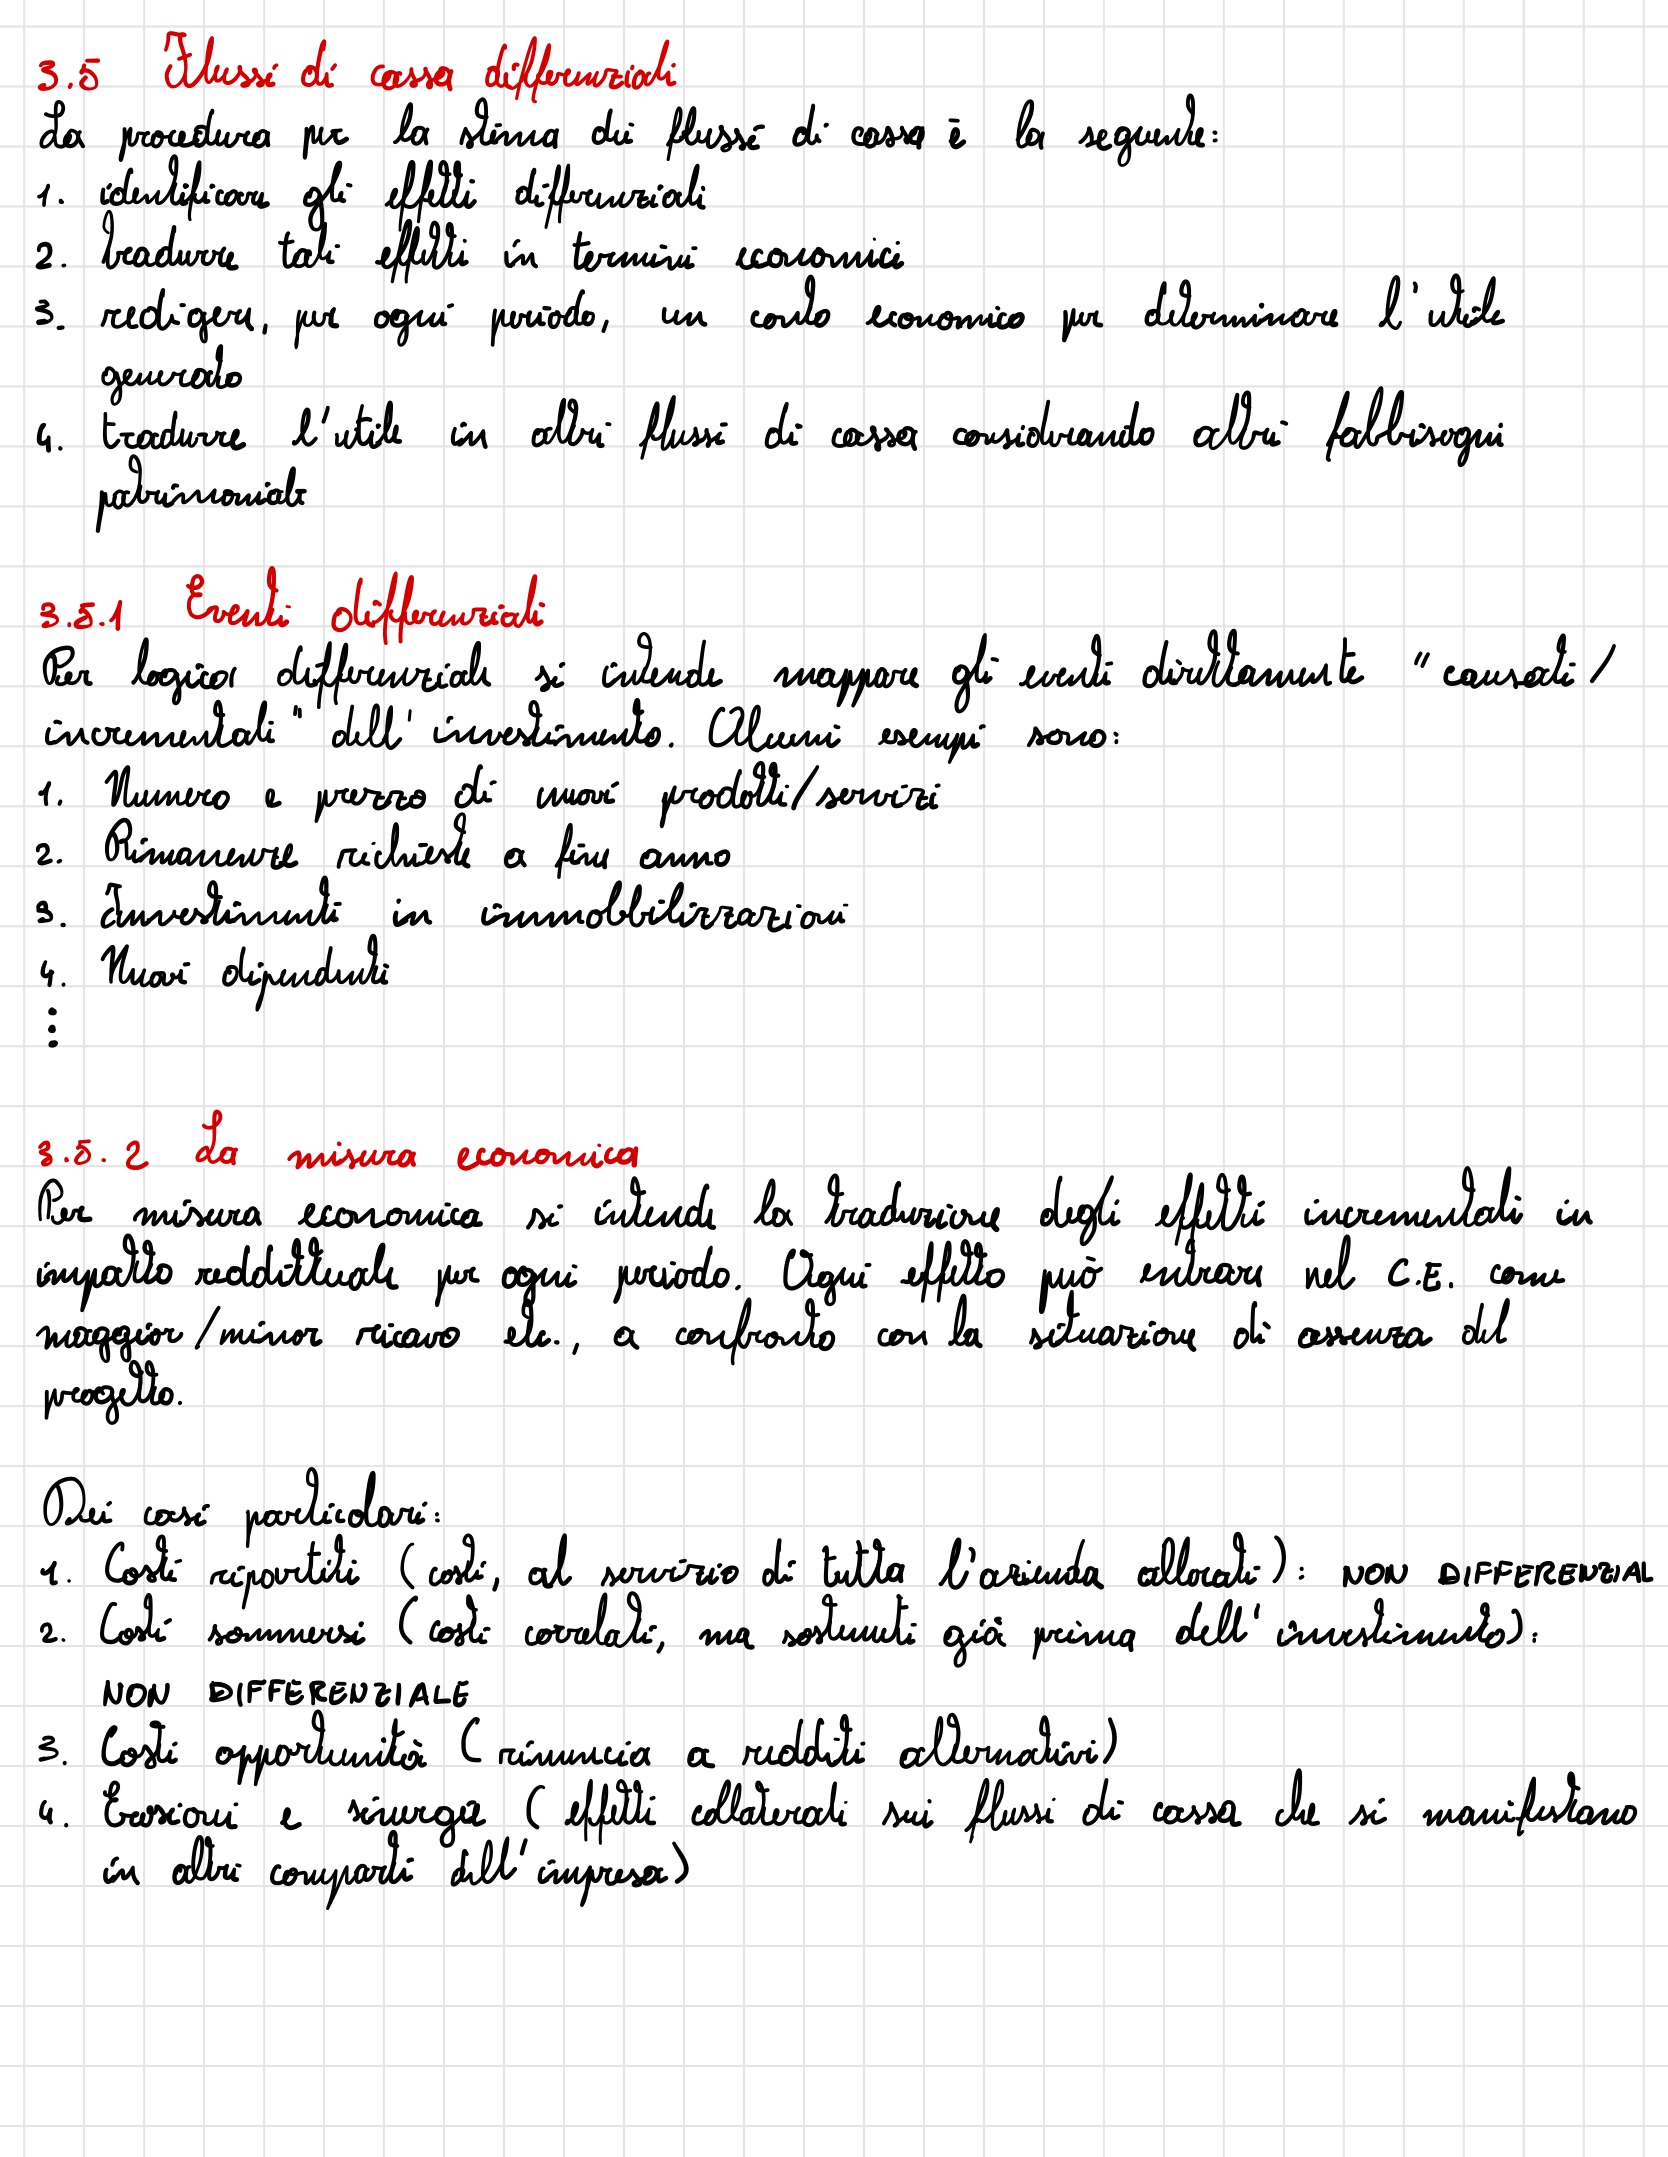 3.5 Flussi di cassa differenziali
La procedura per la stima dei flussi di cassa è la seguente:
1. identificare gli effetti differenziali
2. tradurre tali effetti in termini economici
3. redigere, per ogni periodo, un conto economico per determinare l'utile
generato
4. tradurre l'utile in altri flussi di cassa considerando altri fabbisogni
patrimoniali
3.5.1 Eventi differenziali
Per logica differenziale si intende mappare gli eventi direttamente "causati/
incrementali" dell'investimento. Alcuni esempi sono:
1. Numero e prezzo di nuovi prodotti/servizi
2. Rimanenze richieste a fine anno
3. Investimenti in immobbilizzazioni
4. Nuovi dipendenti
⋮
3.5.2 La misura economica
Per misura economica si intende la traduzione degli effetti incrementali in
impatto reddittuale per ogni periodo. Ogni effetto può entrare nel C.E. come
maggior/minor ricavo etc., a confronto con la situazione di assenza del
progetto.
Dei casi particolari:
1. Costi ripartiti (costi, al servizio di tutta l'azienda allocati): NON DIFFERENZIAL
2. Costi sommersi (costi correlati, ma sostenuti già prima dell'investimento):
NON DIFFERENZIALE
3. Costi opportunità (rinuncia a redditi alternativi)
4. Erosioni e sinergie (effetti collaterali sui flussi di cassa che si manifestano
in altri comparti dell'impresa)